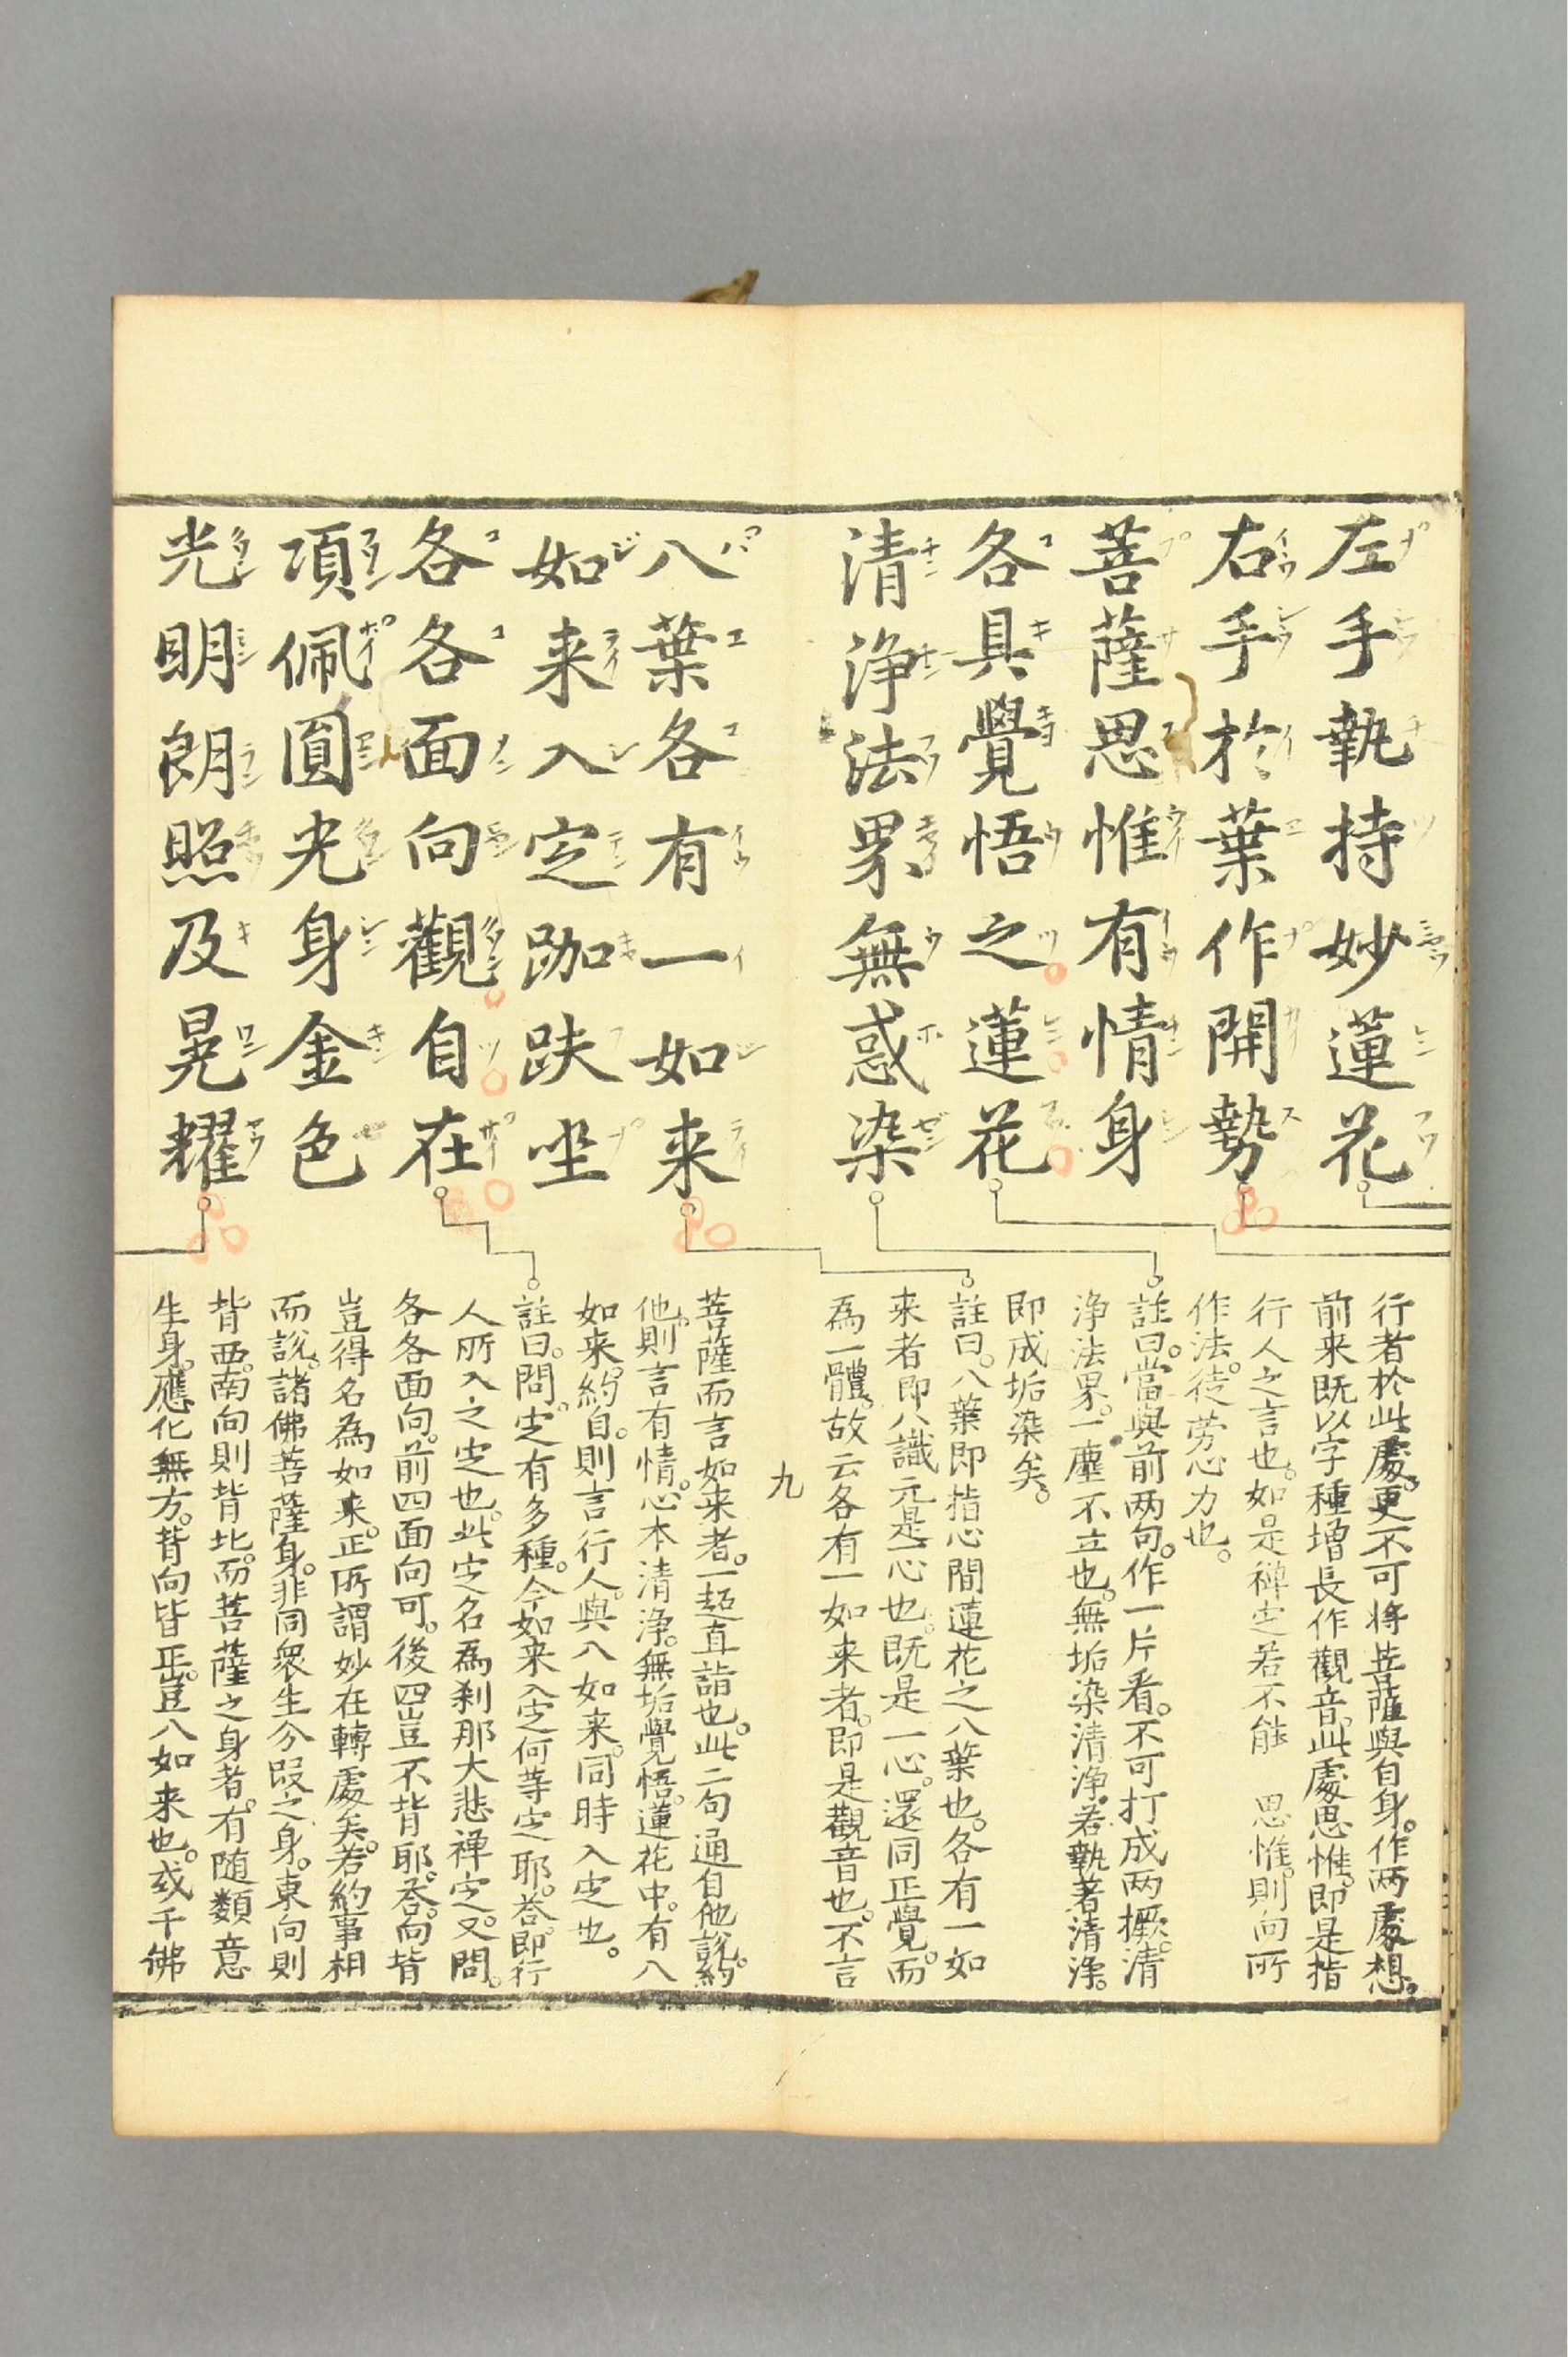 左手執持妙蓮花
右手於葉作開勢
菩薩思惟有情身
各具覺悟之蓮花
清浄法界無惑染
八葉各有一如来
如来入定跏趺坐
各各面向觀自在
項佩圓光身金色
光明朗照及晃耀
行者於此處。更不可将菩薩與自身。作两處想。
前来既以字種增長作觀音。此處思惟。即是指
行人之言也。如是禅定若不能 思惟。則向所
作法。徒劳心力也。
註曰。當與前两句。作一片看。不可打成两橛。清
浄法界。一塵不立也。無垢染清浄。若執著清浄。
即成垢染矣。
註曰。八葉即指心間蓮花之八葉也。各有一如
来者即八識元是一心也。既是一心。還同正覺。而
為一體。故云各有一如来者。即是觀音也。不言
九
菩薩而言如来者。一超直詣也。此二句通自他說。約
他則言有情。心本清浄。無垢覺悟。蓮花中。有八
如来。約自。則言行人。與八如来。同時入定也。
註曰。問。定有多種。今如来入定何等定耶。答。即行
人所入之定也。此定名為刹那大悲禅定。又問。
各各面向。前四面向可。後四豈不背耶。答。向背
豈得名為如来。正所謂妙在轉處矣。若約事相
而說。諸佛菩薩身。非同衆生分段之身。東向則
背西。南向則背北。而菩薩之身者。有随類意
生身。應化無方。背向皆正。豈八如来也。或千佛